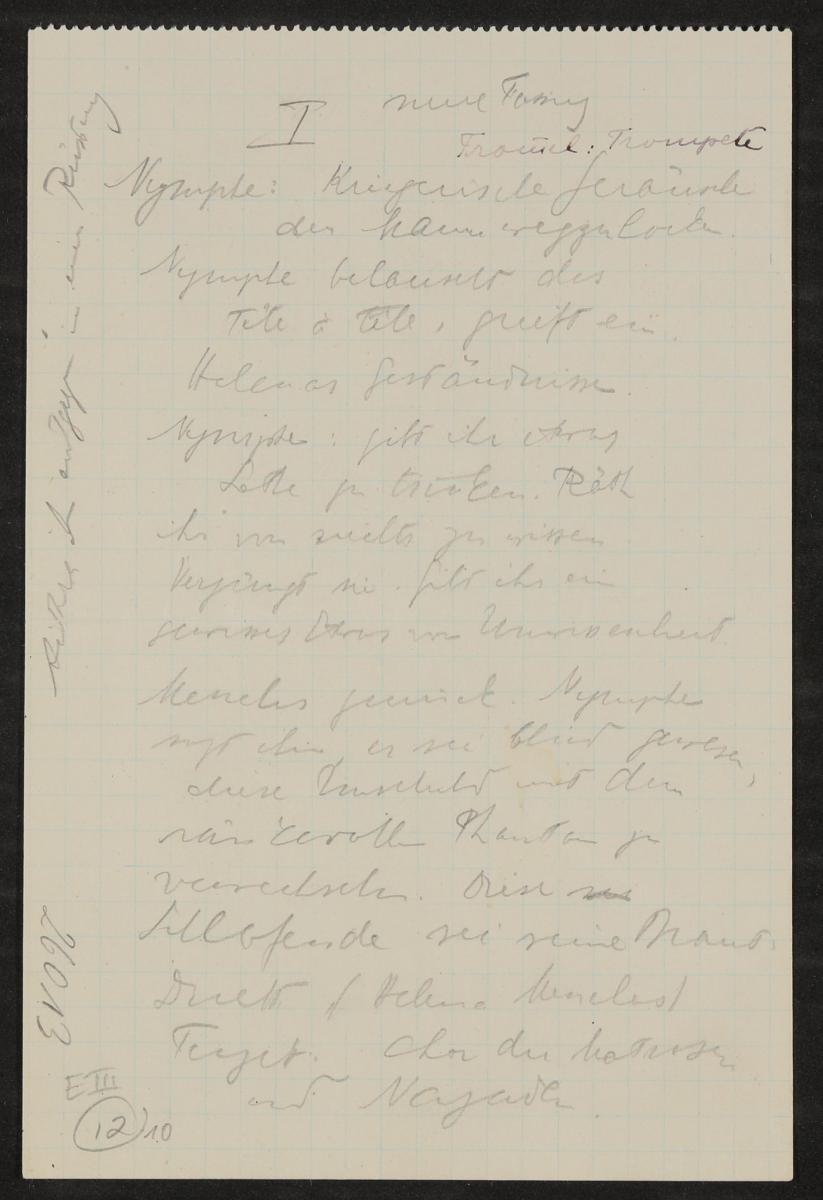 I neue Fassung
Trommel: Trompete
Nymphe: Kriegerische Geräusche
den Mann wegzulocken.
Nymphe belauscht das
Tête à Tête, greift ein.
Helenas Geständnisse.
Nymphe: gibt ihr etwas
Lethe zu trinken. Räth
ihr von nichts zu wissen.
Verjüngt sie. Gibt ihr ein
gewisses Etwas von Unwissenheit.
Menelas zurück. Nymphe
sagt ihm, er sei blind gewesen,
diese Unschuld mit dem
ränkevollen Phantom zu
verwechseln. Diese
Schlafende sei seine Braut.
Duett (Helena Menelas)
Terzett. Chor der Matrosen
und Najaden.
ihr entgegen in einer Rüstung
EVO 92
E III
12)10